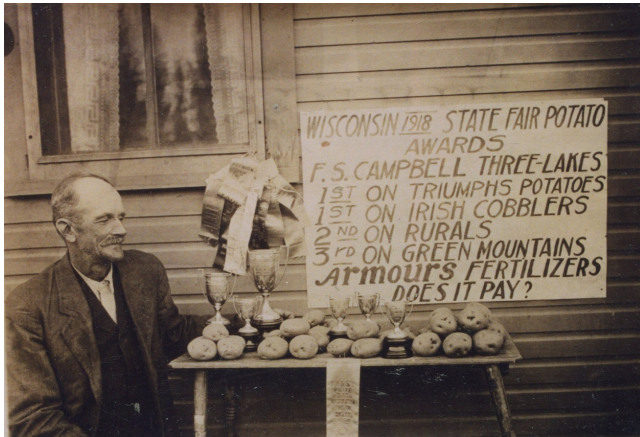 WISCONSIN 1918 STATE FAIR POTATO
AWARDS
F.S. CAMPBELL THREE-LAKES
1ST ON TRIUMPHS POTATOES
1ST ON IRISH COBBLERS
2ND ON RURALS
3RD ON GREEN MOUNTAINS
Armours FERTILIZERS
DOES IT PAY?